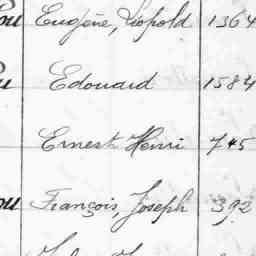 Eugène, Léopold 1364
Edouard 1584
Ernest Henri 745
François, Joseph 392